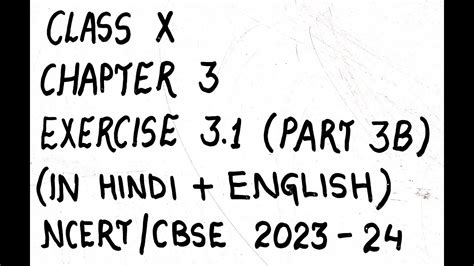 CLASS X
CHAPTER 3
EXERCISE 3.1 (PART 3B)
(IN HINDI + ENGLISH)
NCERT/CBSE 2023-24